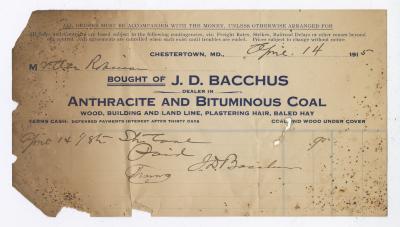 ALL ORDERS MUST BE ACCOMPANIED WITH THE MONEY, UNLESS OTHERWISE ARRANGED FOR
All Sales and Contracts are based subject to the following contingencies, viz. Freight Rates, Strikes, Railroad Delays or other causes beyond
our control. All agreements are cancelled when such exist until troubles are ended. Prices subject to change without notice.
CHESTERTOWN, MD., April 14 1915
M
BOUGHT OF J. D. BACCHUS
DEALER IN
ANTHRACITE AND BITUMINOUS COAL
WOOD, BUILDING AND LAND LIME, PLASTERING HAIR, BALED HAY
TERMS CASH: DEFERRED PAYMENTS INTEREST AFTER THIRTY DAYS COAL AND WOOD UNDER COVER
April 14 985
Paid
J. D. Bacchus